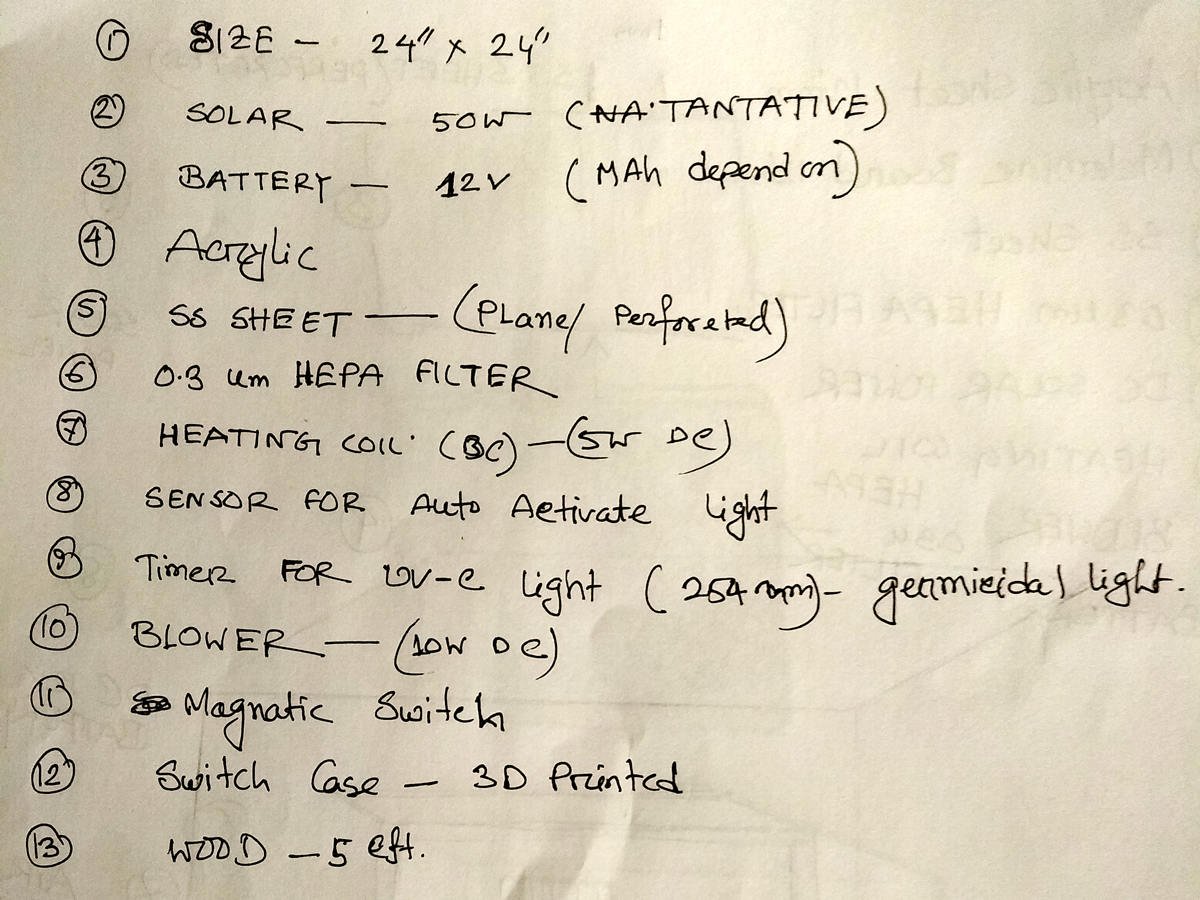 ① SIZE - 24" x 24"
② SOLAR — 50W (NA. TANTATIVE)
③ BATTERY — 12V (MAh depend on)
④ Acrylic
⑤ SS SHEET — (PLane/ Perforeted)
⑥ 0.3 um HEPA FILTER
⑦ HEATING COIL. (DC) — (5W DC)
⑧ SENSOR FOR Auto Activate light
⑨ Timer FOR UV-C light (254 nm) - germicidal light.
⑩ BLOWER — (10W DC)
⑪ Magnatic Switch
⑫ Switch Case - 3D Printed
⑬ WOOD - 5 cft.